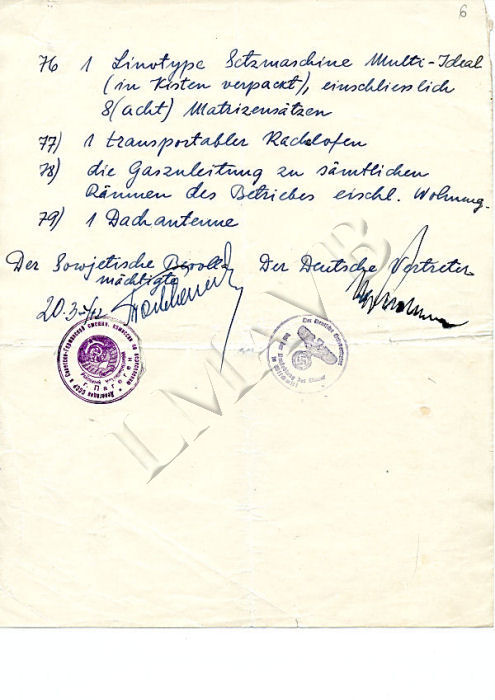 6
76 1 Linotype Setzmaschine Multi-Ideal
(in Kisten verpackt), einschliesslich
8(acht) Matrizensätzen
77) 1 transportabler Kachelofen
78) die Gaszuleitung zu sämtlichen
Räumen des Betriebes eischl. Wohnung.
79) 1 Dachantenne
Der Sowjetische Bevoll-
mächtigte
Der Deutsche Vertreter
LMAVB